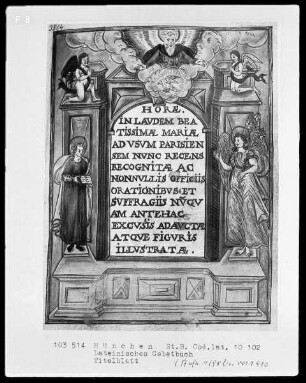 3814
HORÆ.
IN LAVDEM BEA
TISSIMÆ MARIÆ
AD VSVM PARISIEN
SEM NVNC RECENS
RECOGNITÆ AC
NONNVLLIS OFFICIIS
ORATIONIBVS ET
SVFFRAGIIS NVQV
AM ANTEHAC
EXCVSIS ADAVCTÆ
ATQVE FIGVRIS
ILLVSTRATÆ.
103 514 München St.B. Cod.lat. 10 102
Lateinisches Gebetbuch
Titelblatt